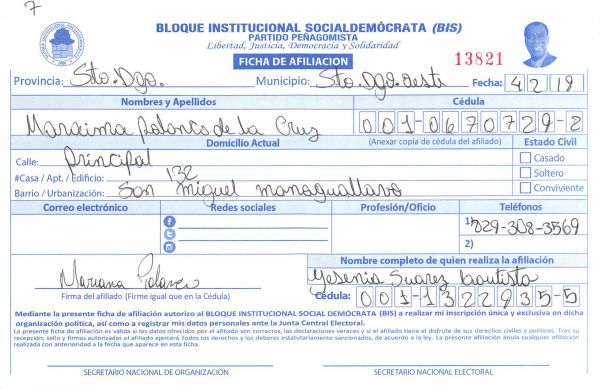 7
BLOQUE INSTITUCIONAL SOCIALDEMÓCRATA (BIS)
PARTIDO PEÑAGOMISTA
Libertad, Justicia, Democracia y Solidaridad
FICHA DE AFILIACION
13821
Provincia: Sto. Dgo. Municipio: Sto. Dgo. oeste Fecha: 4 2 19
Nombres y Apellidos Cédula
Maraima Polanco de la Cruz 001-0670729-2
Domicilio Actual (Anexar copia de cédula del afiliado) Estado Civil
Calle: Principal Casado
#Casa / Apt. / Edificio: 132 Soltero
Barrio / Urbanización: San Miguel manoguallavo Conviviente
Correo electrónico Redes sociales Profesión/Oficio Teléfonos
1) 829-308-3569
2)
Nombre completo de quien realiza la afiliación
Yesenia Suarez bautista
Firma del afiliado (Firme igual que en la Cédula)
Cédula: 001-1322935-5
Mediante la presente ficha de afiliación autorizo al BLOQUE INSTITUCIONAL SOCIAL DEMÓCRATA (BIS) a realizar mi inscripción única y exclusiva en dicha
organización política, así como a registrar mis datos personales ante la Junta Central Electoral.
La presente ficha de afiliación es válida si los datos ofrecidos por el afiliado son correctos, las declaraciones veraces y si el afiliado tiene el disfrute de sus derechos civiles y políticos. Tras su
recepción, sello y firmas autorizadas el afiliado ejercerá todos los derechos y los deberes estatutariamente sancionados, de acuerdo a la ley. La presente afiliación anula cualquier afiliación
realizada con anterioridad a la fecha que aparece en esta ficha.
SECRETARIO NACIONAL DE ORGANIZACIÓN SECRETARIO NACIONAL ELECTORAL